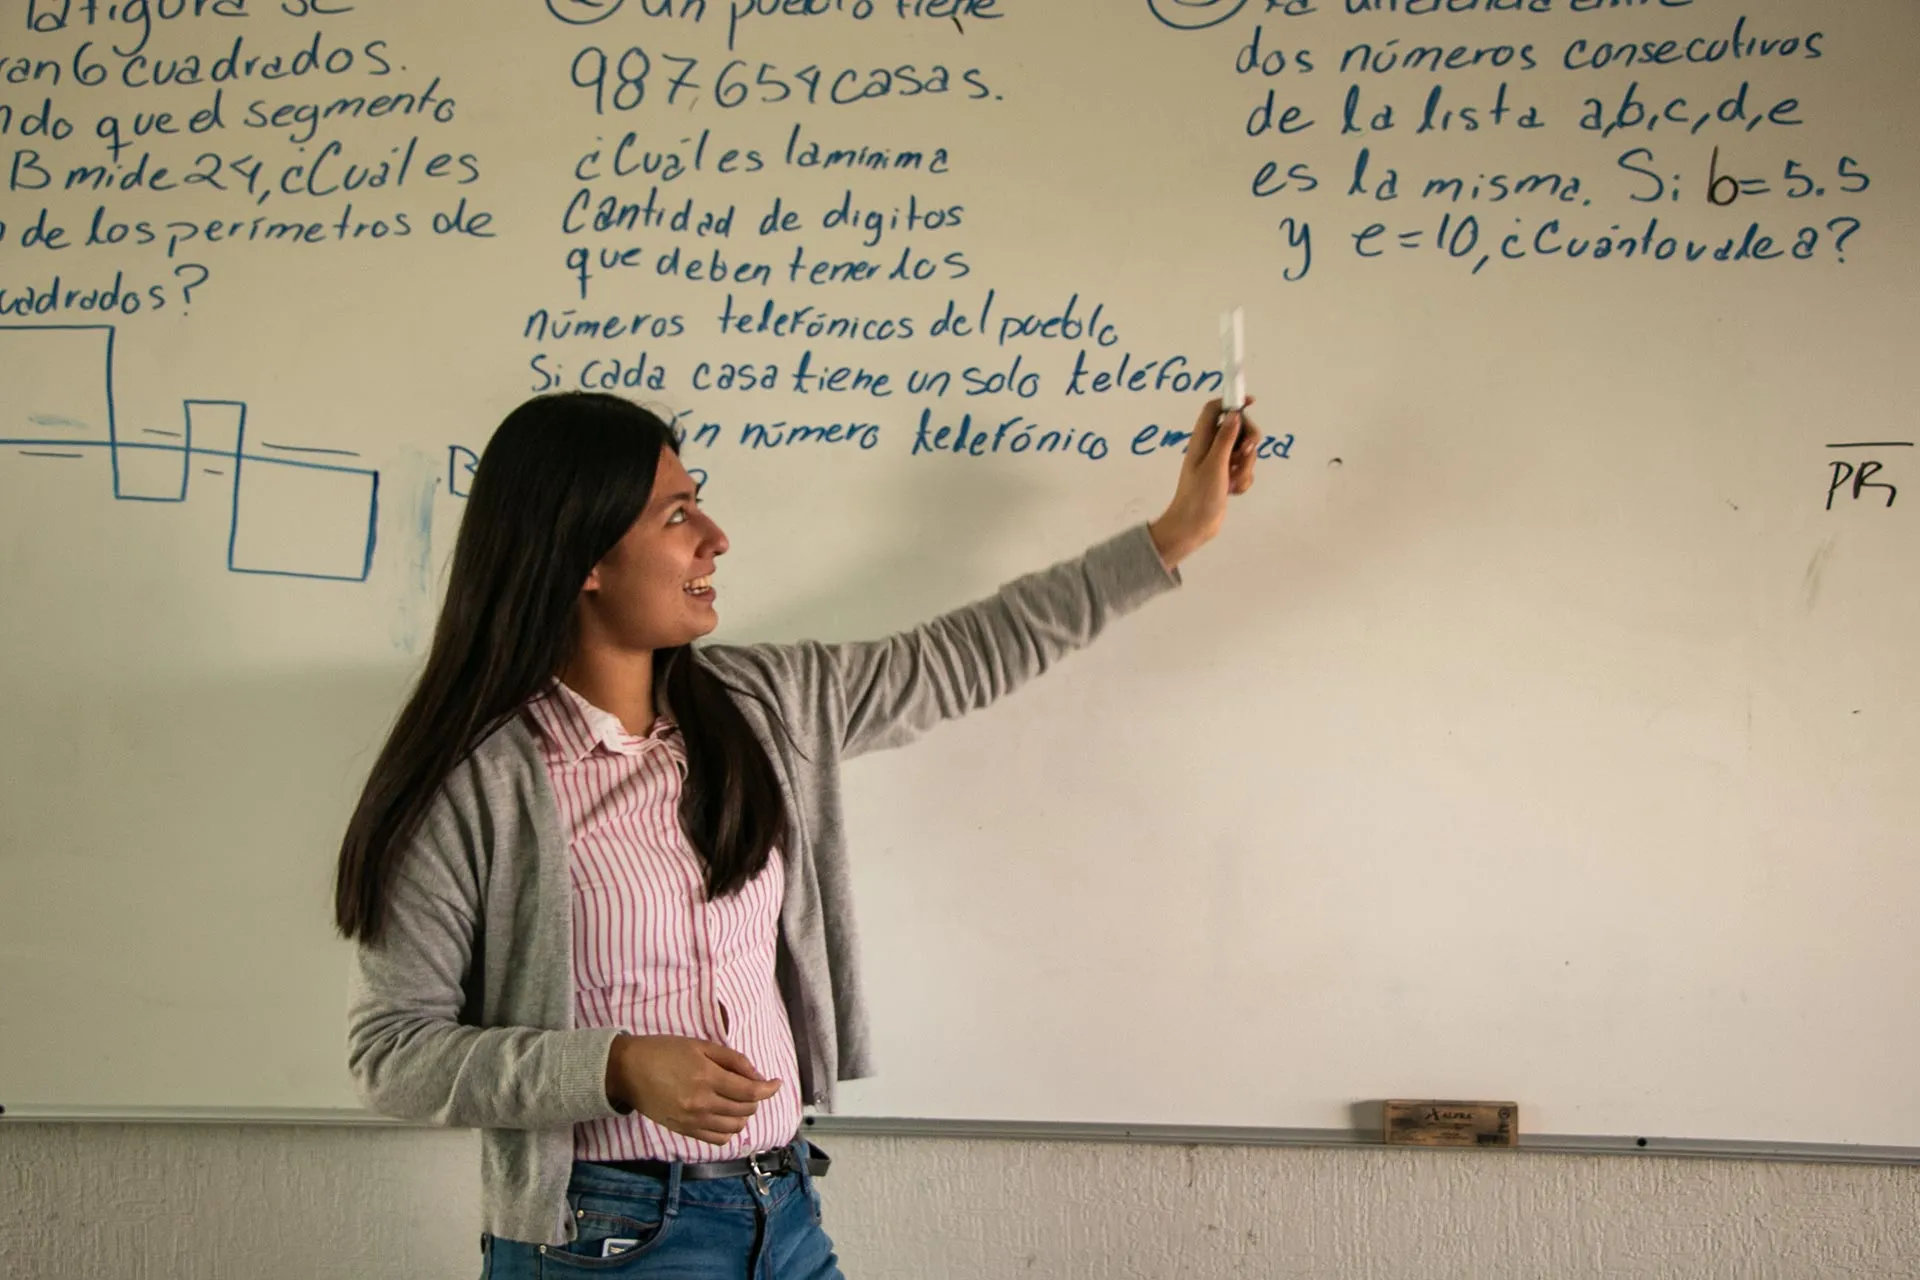 la figura se
an 6 cuadrados.
ndo que el segmento
B mide 24, ¿Cuál es
de los perímetros de
uadrados?
B
2 Un pueblo tiene
987,654 casas.
¿Cuál es la mínima
Cantidad de dígitos
que deben tener los
números telefónicos del pueblo
Si cada casa tiene un solo teléfon
ún número telefónico em za
?
La diferencia entre
dos números consecutivos
de la lista a,b,c,d,e
es la misma. Si b=5.5
y e=10, ¿Cuánto vale a?
PR
ALFRA